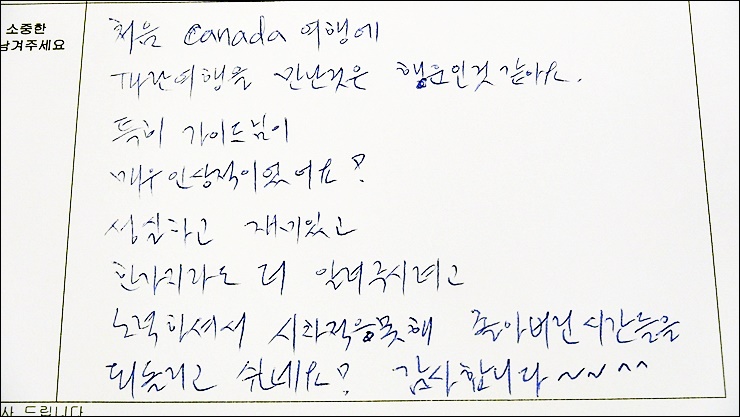 소중한
남겨주세요
처음 Canada 여행에
파란여행을 만난것은 행운인것 같아요.
특히 가이드님이
매우 인상적이었어요!
성실하고 재치있고
한가지라도 더 알려주시려고
노력하셔서 시차적응못해 졸아버린 시간들을
되돌리고 싶네요! 감사합니다~~^^
사 드립니다